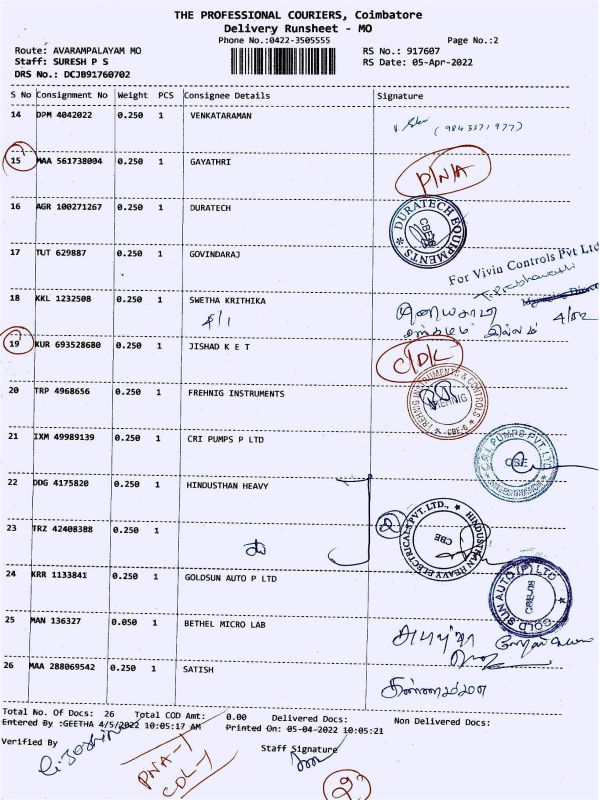 THE PROFESSIONAL COURIERS, Coimbatore
Delivery Runsheet - MO
Phone No.:0422-3505555 Page No.:2
Route: AVARAMPALAYAM MO RS No.: 917607
Staff: SURESH P S RS Date: 05-Apr-2022
DRS No.: DCJB91760702
S No Consignment No Weight PCS Consignee Details Signature
14 DPM 4042022 0.250 1 VENKATARAMAN
(9843371977)
15 MAA 561738004 0.250 1 GAYATHRI P/N/A
16 AGR 100271267 0.250 1 DURATECH
DURATECH EQUIPMENTS. CBE
17 TUT 629887 0.250 1 GOVINDARAJ
For Vivin Controls Pvt Ltd
18 KKL 1232508 0.250 1 SWETHA KRITHIKA
4/02
19 KUR 693528680 0.250 1 JISHAD K E T C/D/L
20 TRP 4968656 0.250 1 FREHNIG INSTRUMENTS
FREHNIG INSTRUMENTS & CONTROLS FREHNIG CBE-6
21 IXM 49989139 0.250 1 CRI PUMPS P LTD
C.R.I. PUMPS PVT. LTD CBE
22 DDG 4175820 0.250 1 HINDUSTHAN HEAVY
2
HINDUSTHAN HEAVY ELECTRICALS PVT. LTD., CBE
23 TRZ 42408388 0.250 1
24 KRR 1133841 0.250 1 GOLDSUN AUTO P LTD
GOLD SUN AUTO (P) LTD
25 MAN 136327 0.050 1 BETHEL MICRO LAB
26 MAA 288069542 0.250 1 SATISH
Total No. Of Docs: 26 Total COD Amt: 0.00 Delivered Docs: Non Delivered Docs:
Entered By :GEETHA 4/5/2022 10:05:17 AM Printed On: 05-04-2022 10:05:21
Verified By Staff Signature
PNA-1
CDL-1
2